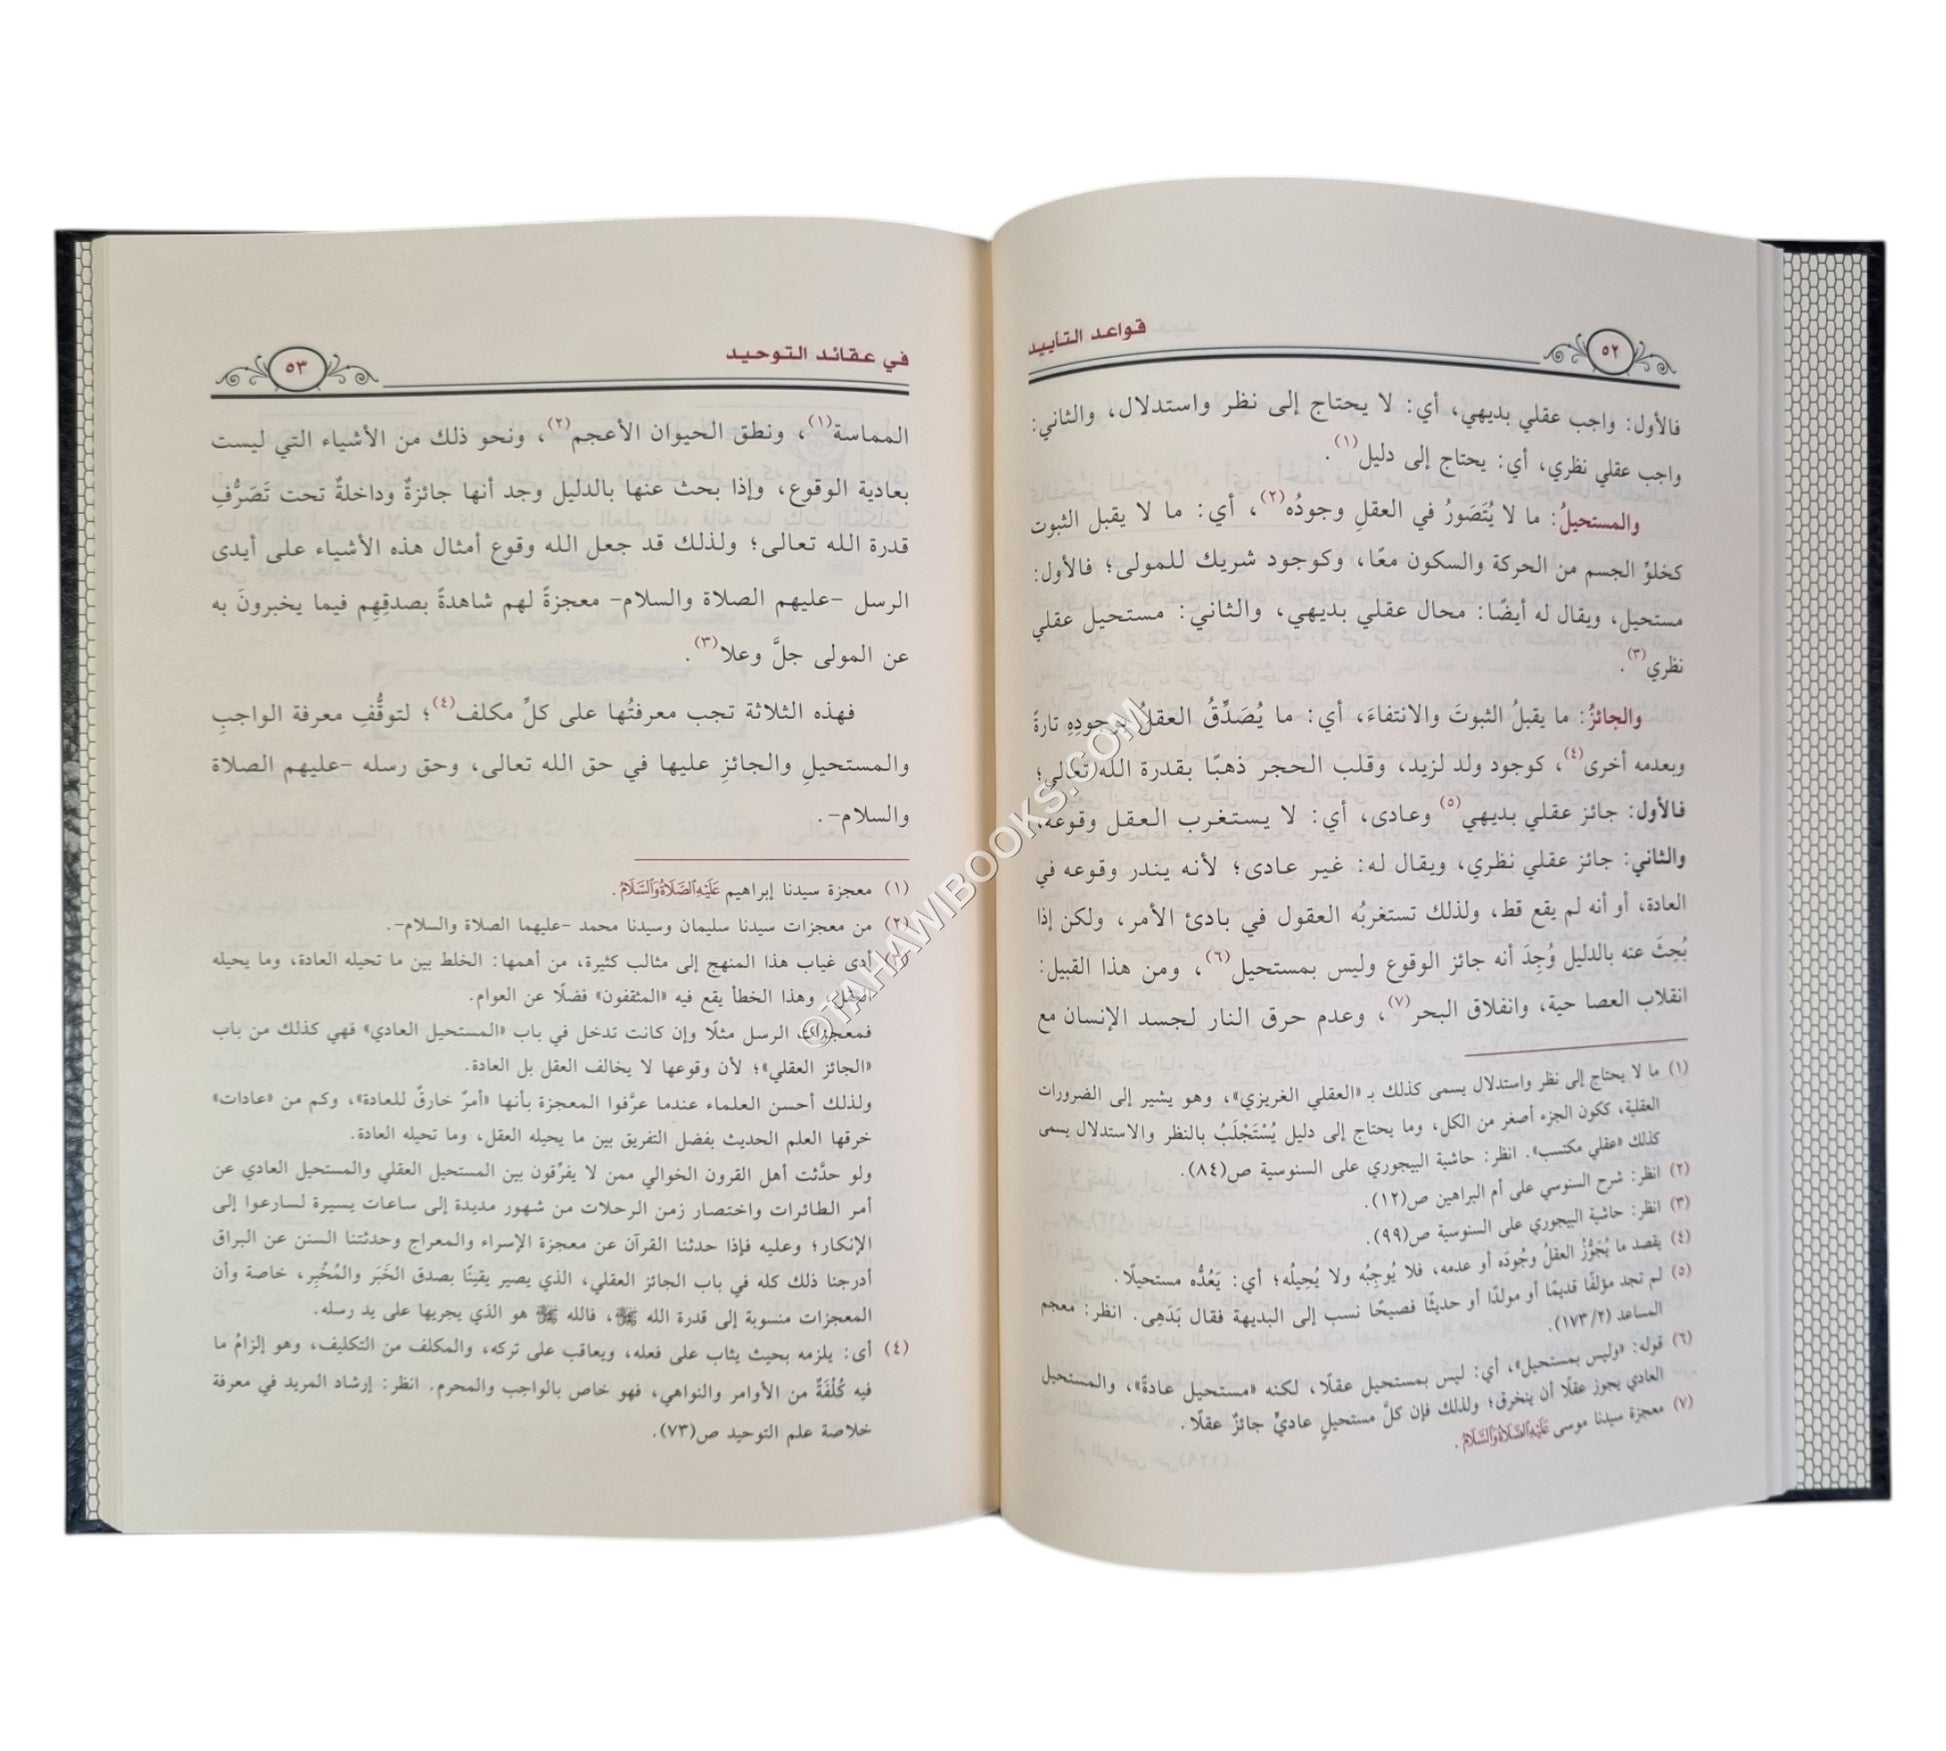 قواعد التأييد
٥٢
فالأول: واجب عقلي بديهي، أي: لا يحتاج إلى نظر واستدلال، والثاني:
واجب عقلي نظري، أي: يحتاج إلى دليل(١).
والمستحيلُ: ما لا يُتَصَورُ في العقلِ وجودُه(٢)، أي: ما لا يقبل الثبوت
كخلوِّ الجسم من الحركة والسكون معًا، وكوجود شريك للمولى؛ فالأول:
مستحيل، ويقال له أيضًا: محال عقلي بديهي، والثاني: مستحيل عقلي
نظري(٣).
والجائزُ: ما يقبلُ الثبوتَ والانتفاءَ، أي: ما يُصَدِّقُ العقلُ بوجودِهِ تارةً
وبعدمه أخرى(٤)، كوجود ولد لزيد، وقلب الحجر ذهبًا بقدرة الله تعالى؛
فالأول: جائز عقلي بديهي(٥) وعادى، أي: لا يستغرب العقل وقوعه،
والثاني: جائز عقلي نظري، ويقال له: غير عادى؛ لأنه يندر وقوعه في
العادة، أو أنه لم يقع قط، ولذلك تستغربُه العقول في بادئ الأمر، ولكن إذا
بُحِثَ عنه بالدليل وُجِدَ أنه جائز الوقوع وليس بمستحيل(٦)، ومن هذا القبيل:
انقلاب العصا حية، وانفلاق البحر(٧)، وعدم حرق النار لجسد الإنسان مع
(١) ما لا يحتاج إلى نظر واستدلال يسمى كذلك بـ «العقلي الغريزي»، وهو يشير إلى الضرورات
العقلية، ككون الجزء أصغر من الكل، وما يحتاج إلى دليل يُسْتَجْلَبُ بالنظر والاستدلال يسمى
كذلك «عقلي مكتسب». انظر: حاشية البيجوري على السنوسية ص(٨٤).
(٢) انظر: شرح السنوسي على أم البراهين ص(١٢).
(٣) انظر: حاشية البيجوري على السنوسية ص(٩٩).
(٤) يقصد ما يُجَوِّزُ العقلُ وجُودَه أو عدمه، فلا يُوجِبُه ولا يُحِيلُه؛ أي: يَعُدُّه مستحيلًا.
(٥) لم تجد مؤلفًا قديمًا أو مولدًا أو حديثًا فصيحًا نسب إلى البديهة فقال بَدَهِى. انظر: معجم
المساعد (٢/ ١٧٣).
(٦) قوله: «وليس بمستحيل»، أي: ليس بمستحيل عقلًا، لكنه «مستحيل عادةً»، والمستحيل
العادي يجوز عقلًا أن ينخرق؛ ولذلك فإن كلَّ مستحيلٍ عاديٍّ جائزٌ عقلًا.
(٧) معجزة سيدنا موسى عَلَيْهِ الصَّلَاةُ وَالسَّلَامُ.
في عقائد التوحيد
٥٣
المماسة(١)، ونطق الحيوان الأعجم(٢)، ونحو ذلك من الأشياء التي ليست
بعادية الوقوع، وإذا بحث عنها بالدليل وجد أنها جائزةٌ وداخلةٌ تحت تَصَرُّفِ
قدرة الله تعالى؛ ولذلك قد جعل الله وقوع أمثال هذه الأشياء على أيدى
الرسل -عليهم الصلاة والسلام- معجزةً لهم شاهدةً بصدقِهِم فيما يخبرونَ به
عن المولى جلَّ وعلا(٣).
فهذه الثلاثة تجب معرفتُها على كلِّ مكلف(٤)؛ لتوقُّفِ معرفة الواجبِ
والمستحيلِ والجائزِ عليها في حق الله تعالى، وحق رسله -عليهم الصلاة
والسلام-.
(١) معجزة سيدنا إبراهيم عَلَيْهِ الصَّلَاةُ وَالسَّلَامُ.
(٢) من معجزات سيدنا سليمان وسيدنا محمد -عليهما الصلاة والسلام-.
(٣) أدى غياب هذا المنهج إلى مثالب كثيرة، من أهمها: الخلط بين ما تحيله العادة، وما يحيله
العقل، وهذا الخطأ يقع فيه «المثقفون» فضلًا عن العوام.
فمعجزات الرسل مثلًا وإن كانت تدخل في باب «المستحيل العادي» فهي كذلك من باب
«الجائز العقلي»؛ لأن وقوعها لا يخالف العقل بل العادة.
ولذلك أحسن العلماء عندما عرَّفوا المعجزة بأنها «أمرٌ خارقٌ للعادة»، وكم من «عادات»
خرقها العلم الحديث بفضل التفريق بين ما يحيله العقل، وما تحيله العادة.
ولو حدَّثت أهل القرون الخوالي ممن لا يفرِّقون بين المستحيل العقلي والمستحيل العادي عن
أمر الطائرات واختصار زمن الرحلات من شهور مديدة إلى ساعات يسيرة لسارعوا إلى
الإنكار؛ وعليه فإذا حدثنا القرآن عن معجزة الإسراء والمعراج وحدثتنا السنن عن البراق
أدرجنا ذلك كله في باب الجائز العقلي، الذي يصير يقينًا بصدق الخَبَر والمُخْبِر، خاصة وأن
المعجزات منسوبة إلى قدرة الله ﷻ، فالله ﷻ هو الذي يجريها على يد رسله.
(٤) أى: يلزمه بحيث يثاب على فعله، ويعاقب على تركه، والمكلف من التكليف، وهو إلزامُ ما
فيه كُلْفَةٌ من الأوامر والنواهي، فهو خاص بالواجب والمحرم. انظر: إرشاد المريد في معرفة
خلاصة علم التوحيد ص(٧٣).
©TAHAWIBOOKS.COM